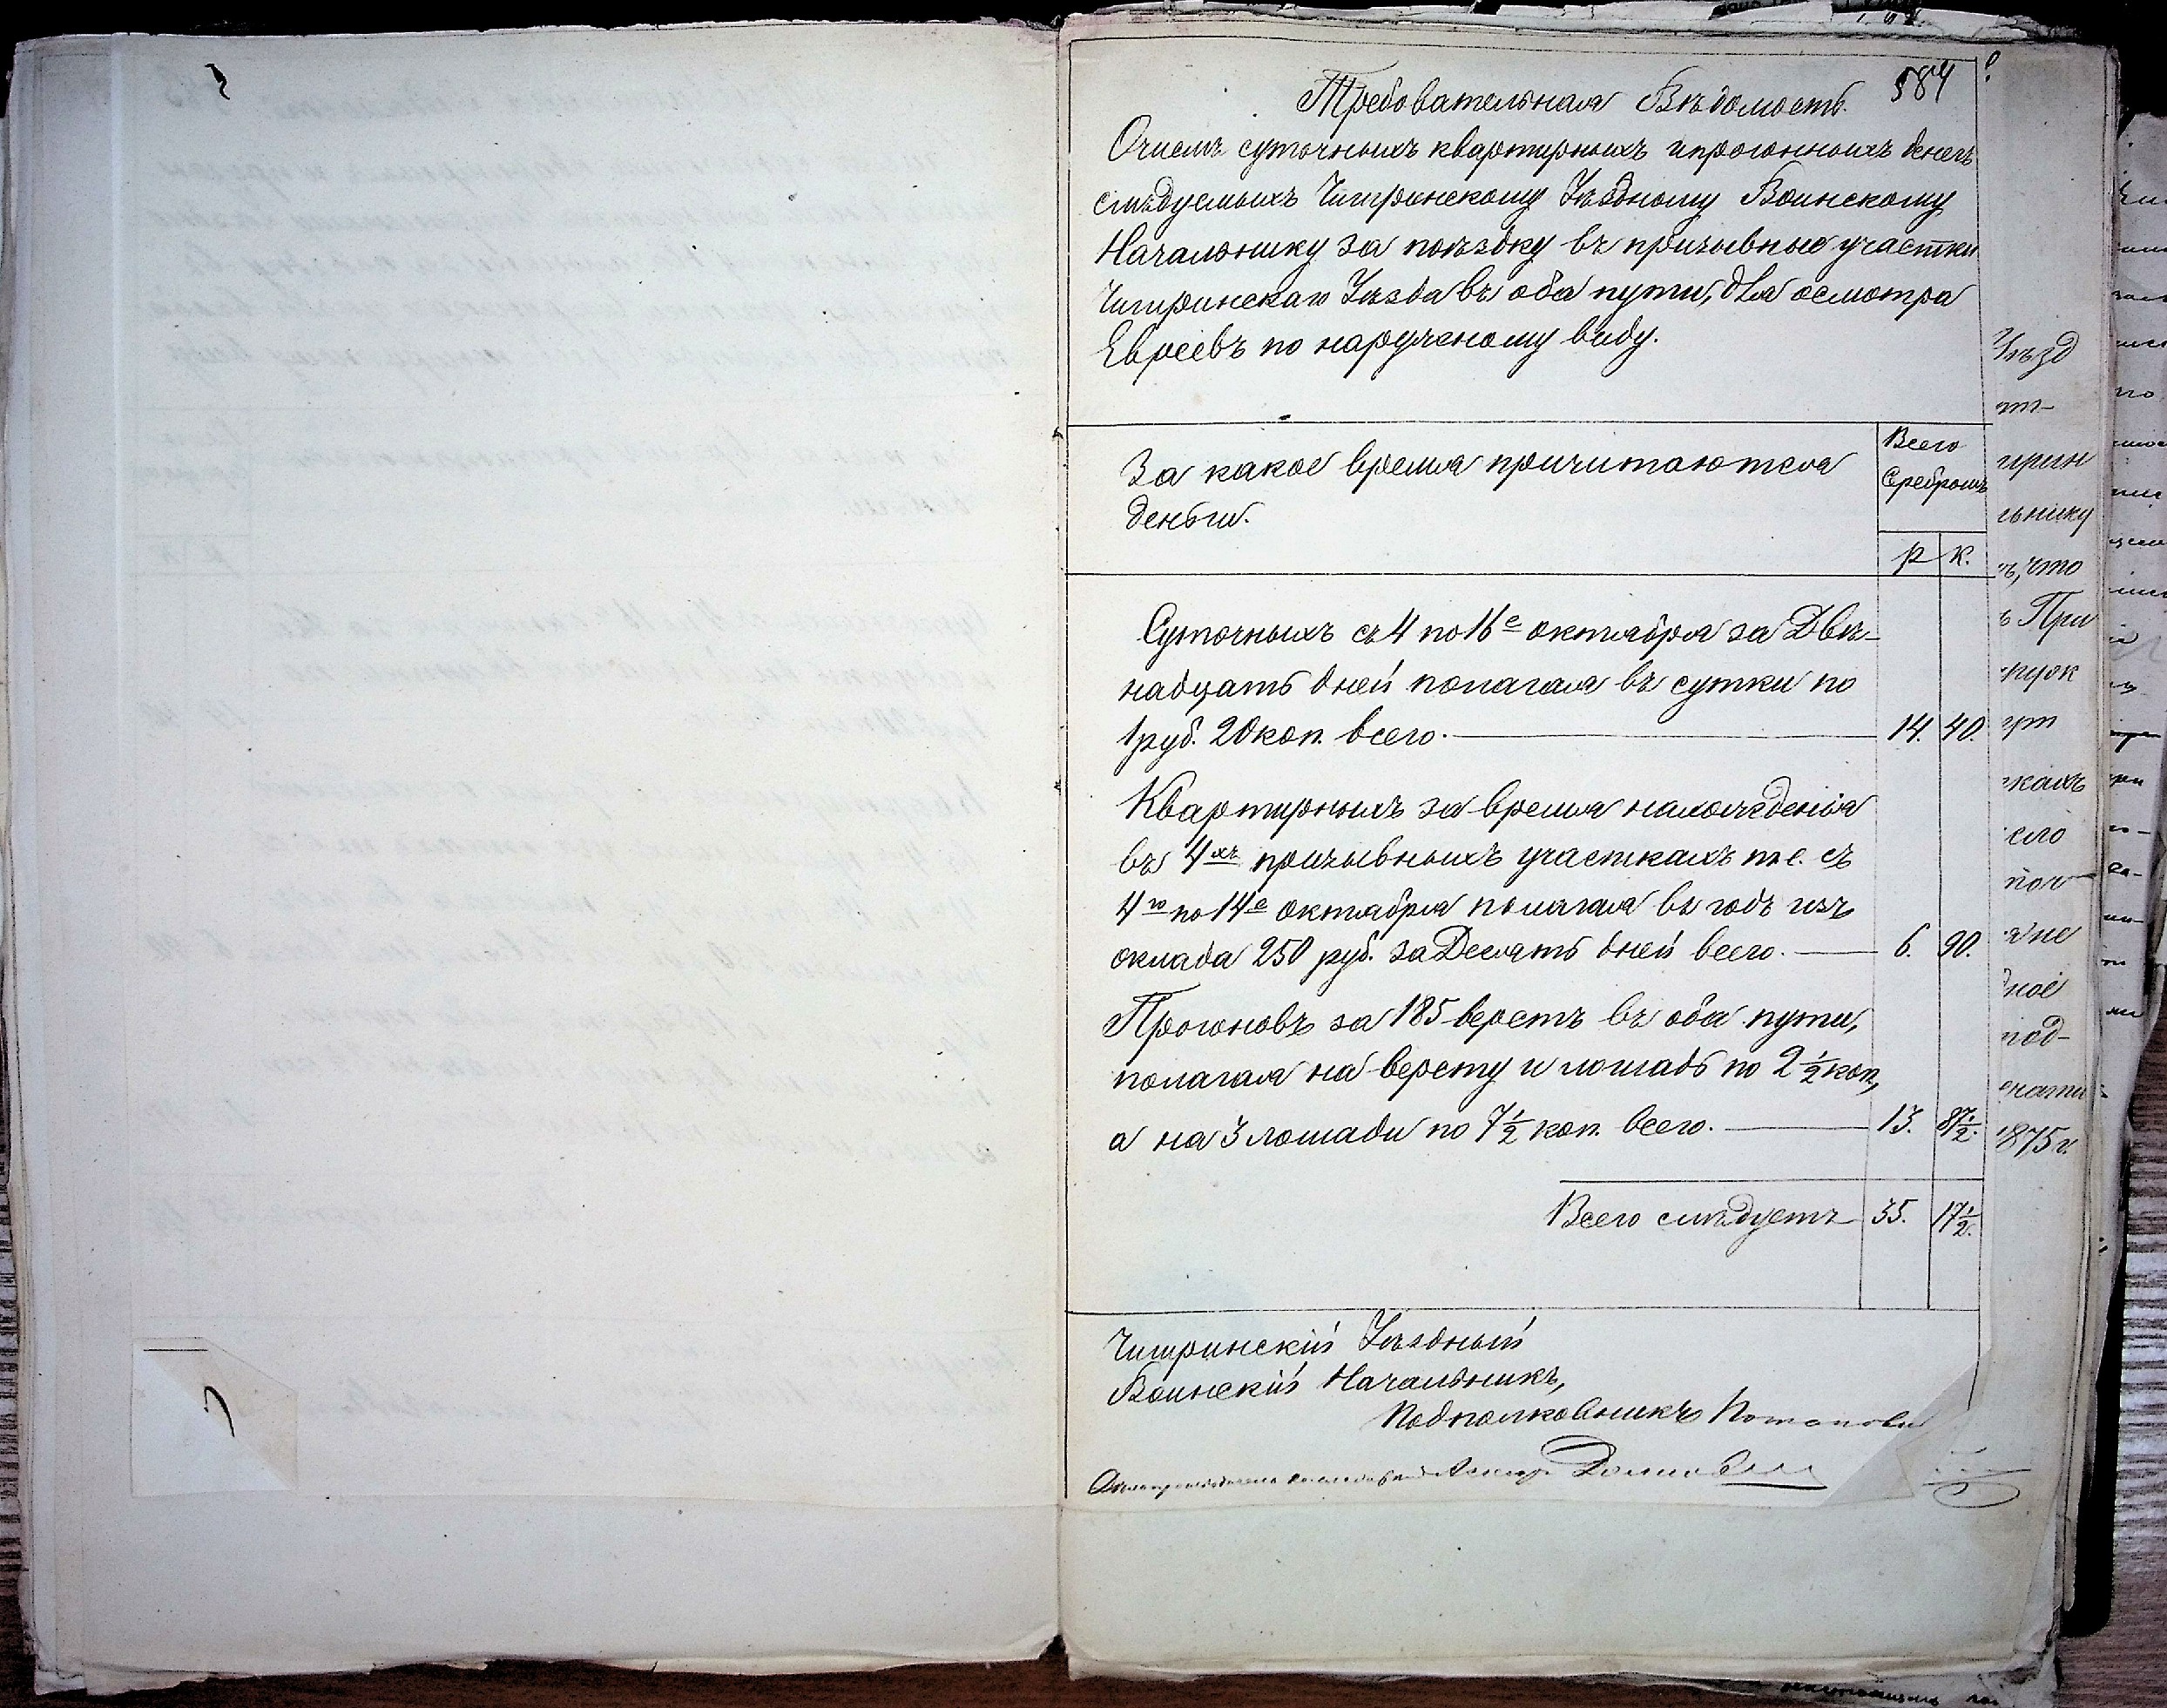 584
Требовательная Вѣдомость.
О числѣ суточныхъ квартирныхъ и прогонныхъ денегъ
слѣдуемыхъ Чигринскому Уѣздному Воинскому
Начальнику за поѣздку въ призывные участки
Чигринскаго Уѣзда въ оба пути, для осмотра
Евреевъ по наружному виду.
За какое время причитаются
деньги.
Всего
Сребромъ
р. к.
Суточныхъ съ 4 по 16е октября за Двѣ-
надцать дней полагая въ сутки по
1 руб. 20 коп. всего. — 14. 40.
Квартирныхъ за время нахожденія
въ 4хъ призывныхъ участкахъ т.е. съ
4го по 14е октября полагая въ годъ изъ
оклада 250 руб. за Десять дней всего. — 6. 90.
Прогоновъ за 185 верстъ въ оба пути,
полагая на версту и лошадь по 2 ½ коп,
а на 3 лошади по 7 ½ коп. всего. — 13. 87 ½.
Всего слѣдуетъ 35. 17 ½.
Чигринскій Уѣздный
Воинскій Начальникъ,
Подполковникъ Потаповъ
Уѣзд
ігрин
льнику
ъ, что
ъ При
его
не
ное
под-
1875 г.